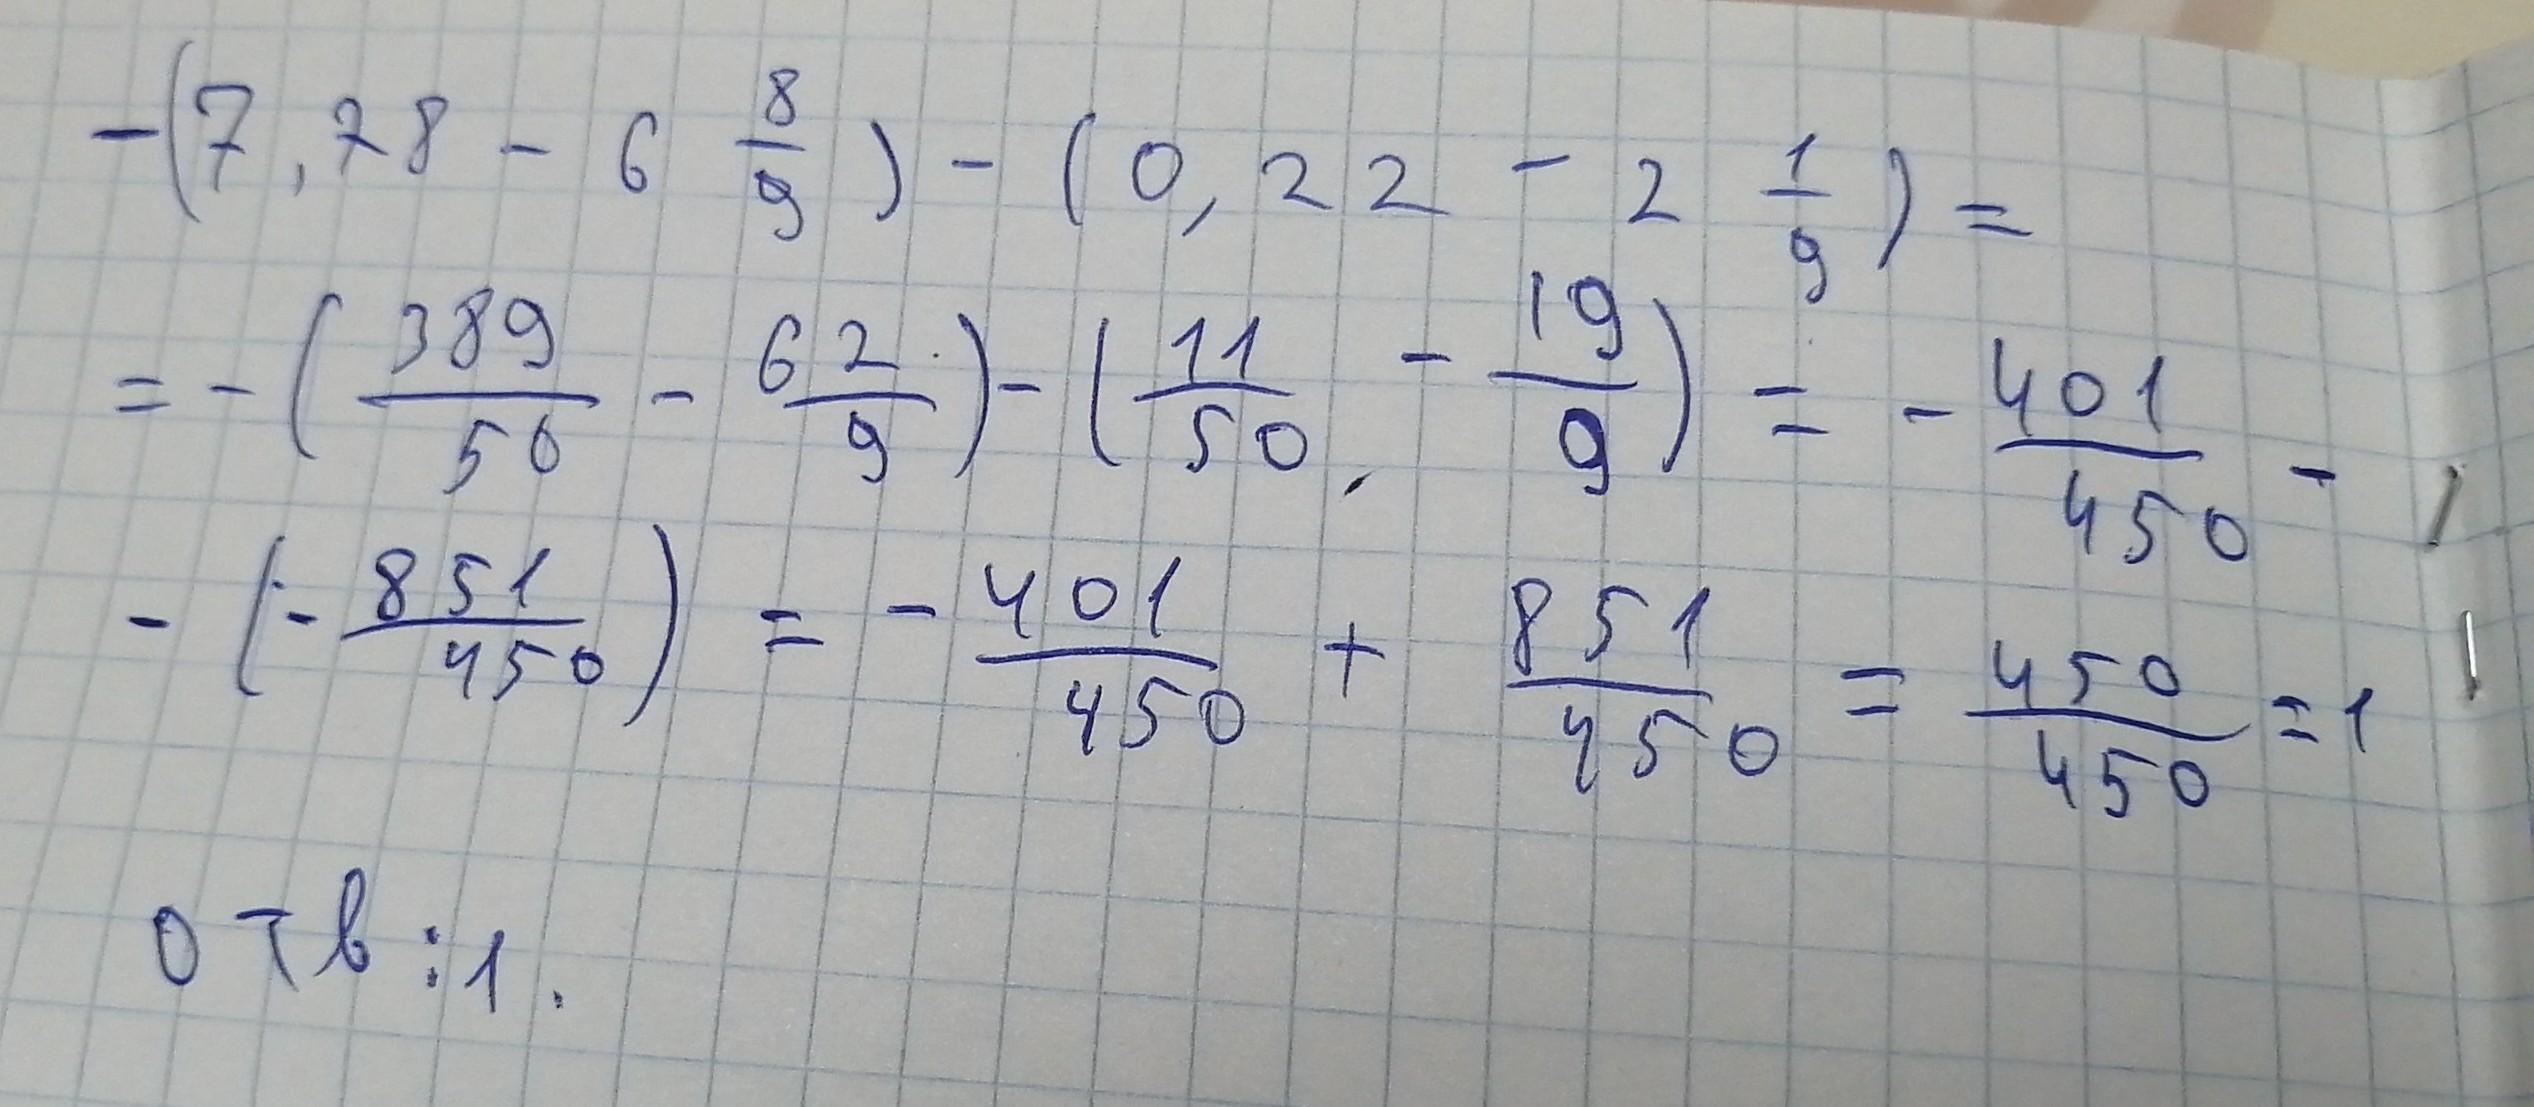 -(7,78 - 6 8/9) - (0,22 - 2 1/9) =
= -(389/50 - 62/9) - (11/50 - 19/9) = -401/450 -
-(-851/450) = -401/450 + 851/450 = 450/450 = 1
отв: 1.